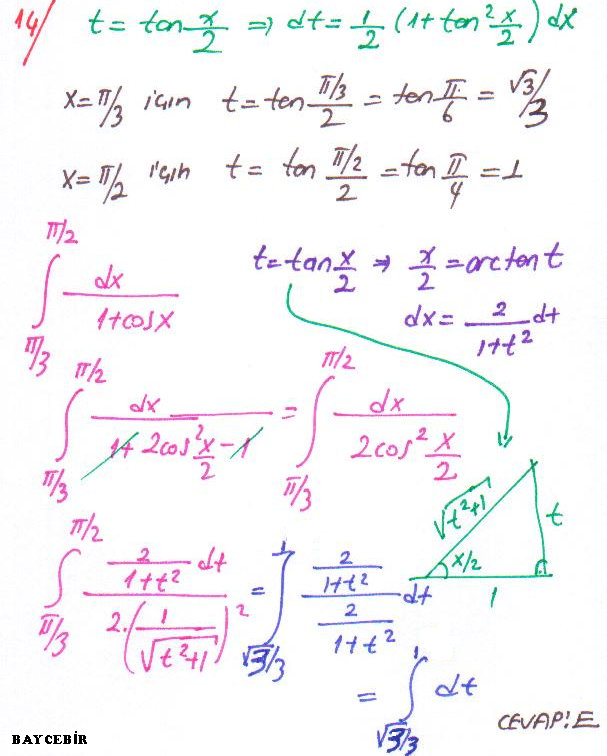 14/ t = tan x/2 ⇒ dt = 1/2 (1+tan² x/2) dx
x = π/3 için t = tan (π/3)/2 = tan π/6 = √3/3
x = π/2 için t = tan (π/2)/2 = tan π/4 = 1
∫_{π/3}^{π/2} dx/(1+cosx)
t = tan x/2 ⇒ x/2 = arctan t
dx = 2/(1+t²) dt
∫_{π/3}^{π/2} dx/(1+2cos² x/2 -1) = ∫_{π/3}^{π/2} dx/(2cos² x/2)
√(t²+1) t
x/2
1
∫_{π/3}^{π/2} (2/(1+t²) dt)/(2.(1/√(t²+1))²) = ∫_{√3/3}^{1} (2/(1+t²))/(2/(1+t²)) dt
= ∫_{√3/3}^{1} dt
CEVAP: E
BAYCEBİR